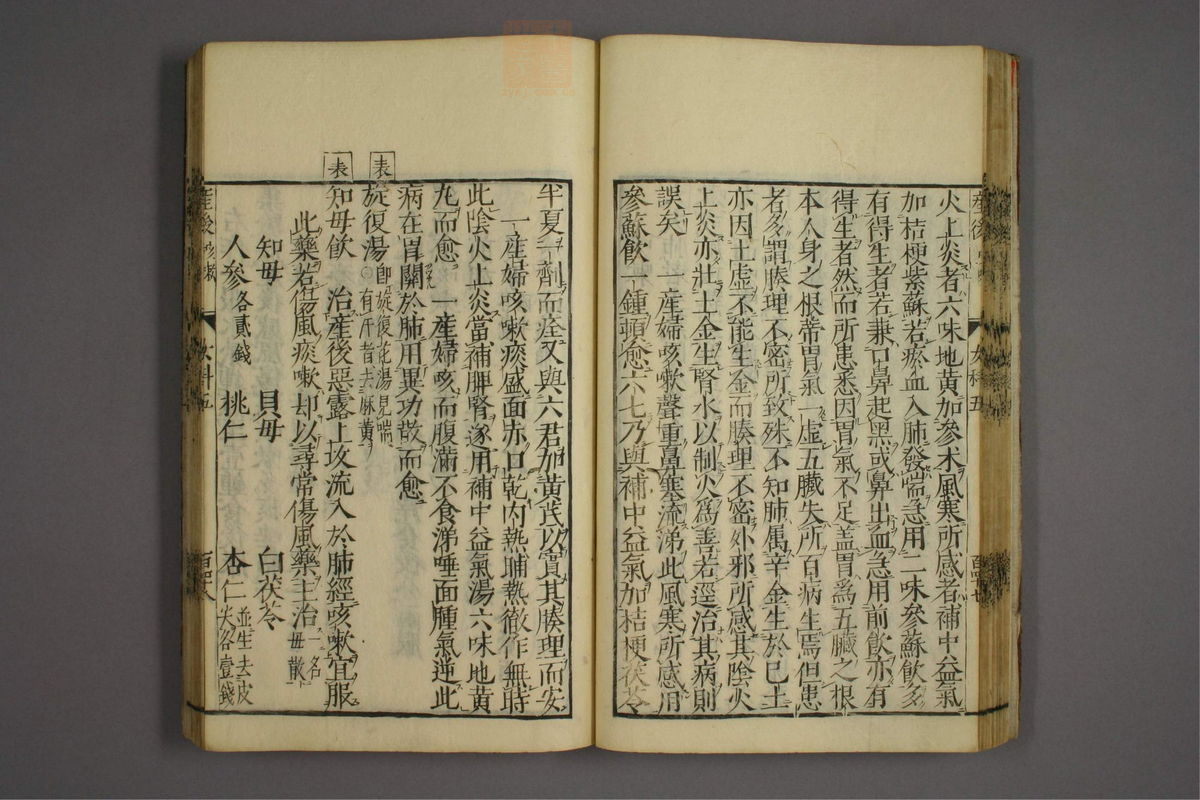 火上炎者六味地黃加參术風寒所感者補中益氣
加桔梗紫蘇若瘀血入肺發喘急用二味參蘇飲多
有得生者若兼口鼻起黑或鼻出血急用前飲亦有
得生者然而所患悉因胃氣不足盖胃爲五臟之根
本人身之根蒂胃氣一虛五臟失所百病生焉但患
者多謂腠理不密所致殊不知肺属辛金生於巳土
亦因土虛不能生金而腠理不密外邪所感其陰火
上炎亦壯土金生腎水以制火爲善若逕治其病則
誤矣 一產婦咳嗽聲重鼻塞流涕此風寒所感用
參蘇飲一鍾頓愈六七乃與補中益氣加桔梗茯苓
半夏一劑而痊又與六君加黃芪以實其腠理而安
一產婦咳嗽痰盛面赤口乾内熱晡熱徹作無時
此陰火上炎當補脾腎遂用補中益氣湯六味地黃
九而愈 一產婦咳而腹滿不食涕唾面腫氣逆此
病在胃關於肺用異功散而愈
表
旋復湯 即旋復花湯見喘
有汗者去麻黄
表
知母飲 治產後惡露上攻流入於肺經咳嗽宜服
此藥若傷風痰嗽却以尋常傷風藥主治 一名
母散
知母 貝母 白茯苓
人參各貳錢 桃仁 杏仁 並生去皮
尖各壹錢
產後 咳嗽 女科五 百四十八
女科五 百四十七